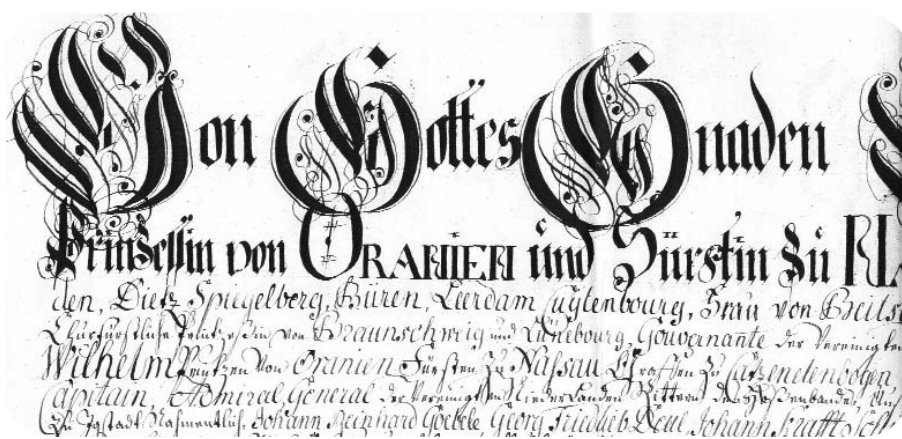 Von Gottes Gnaden
Printzessin von ORANIEN und Fürstin Zu NA
den, Dietz, Spiegelberg, Büren, Leerdam Cuylenbourg, Frau von Beilst
Churfürstliche Printzessin von Braunschweig und Lünebourg, Gouvernante der Vereinigten
Wilhelm Printzen Von Oranien Fürsten Zu Nassau Graffen Zu Catzenelenbogen,
Capitain, Admiral General der Vereinigten Niederlanden Rittern des
Zu Igstadt Nahmentlich, Johann Reinhard Goebele Georg Friedlieb Johann Krafft